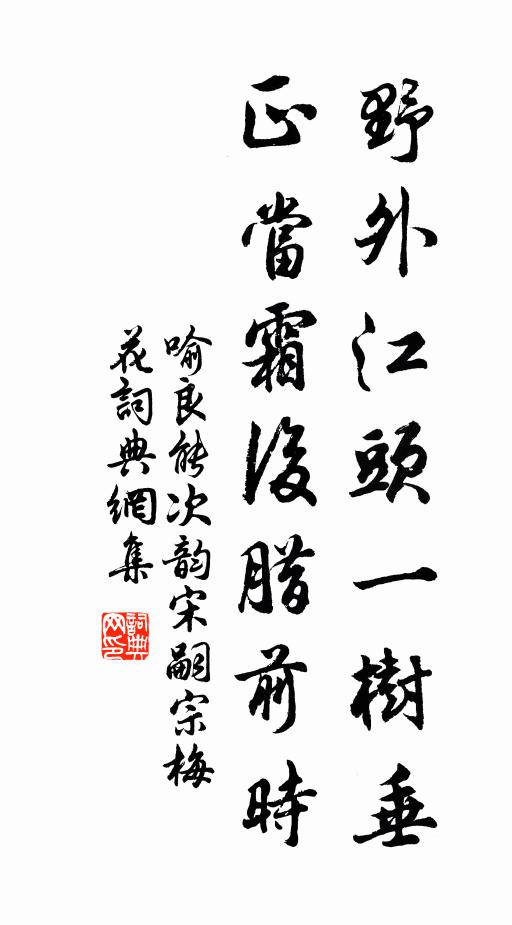 野外江頭一樹垂
正當霜後腊前時
喻良能次韵宋嗣宗梅
花詞典網集
詞典网印